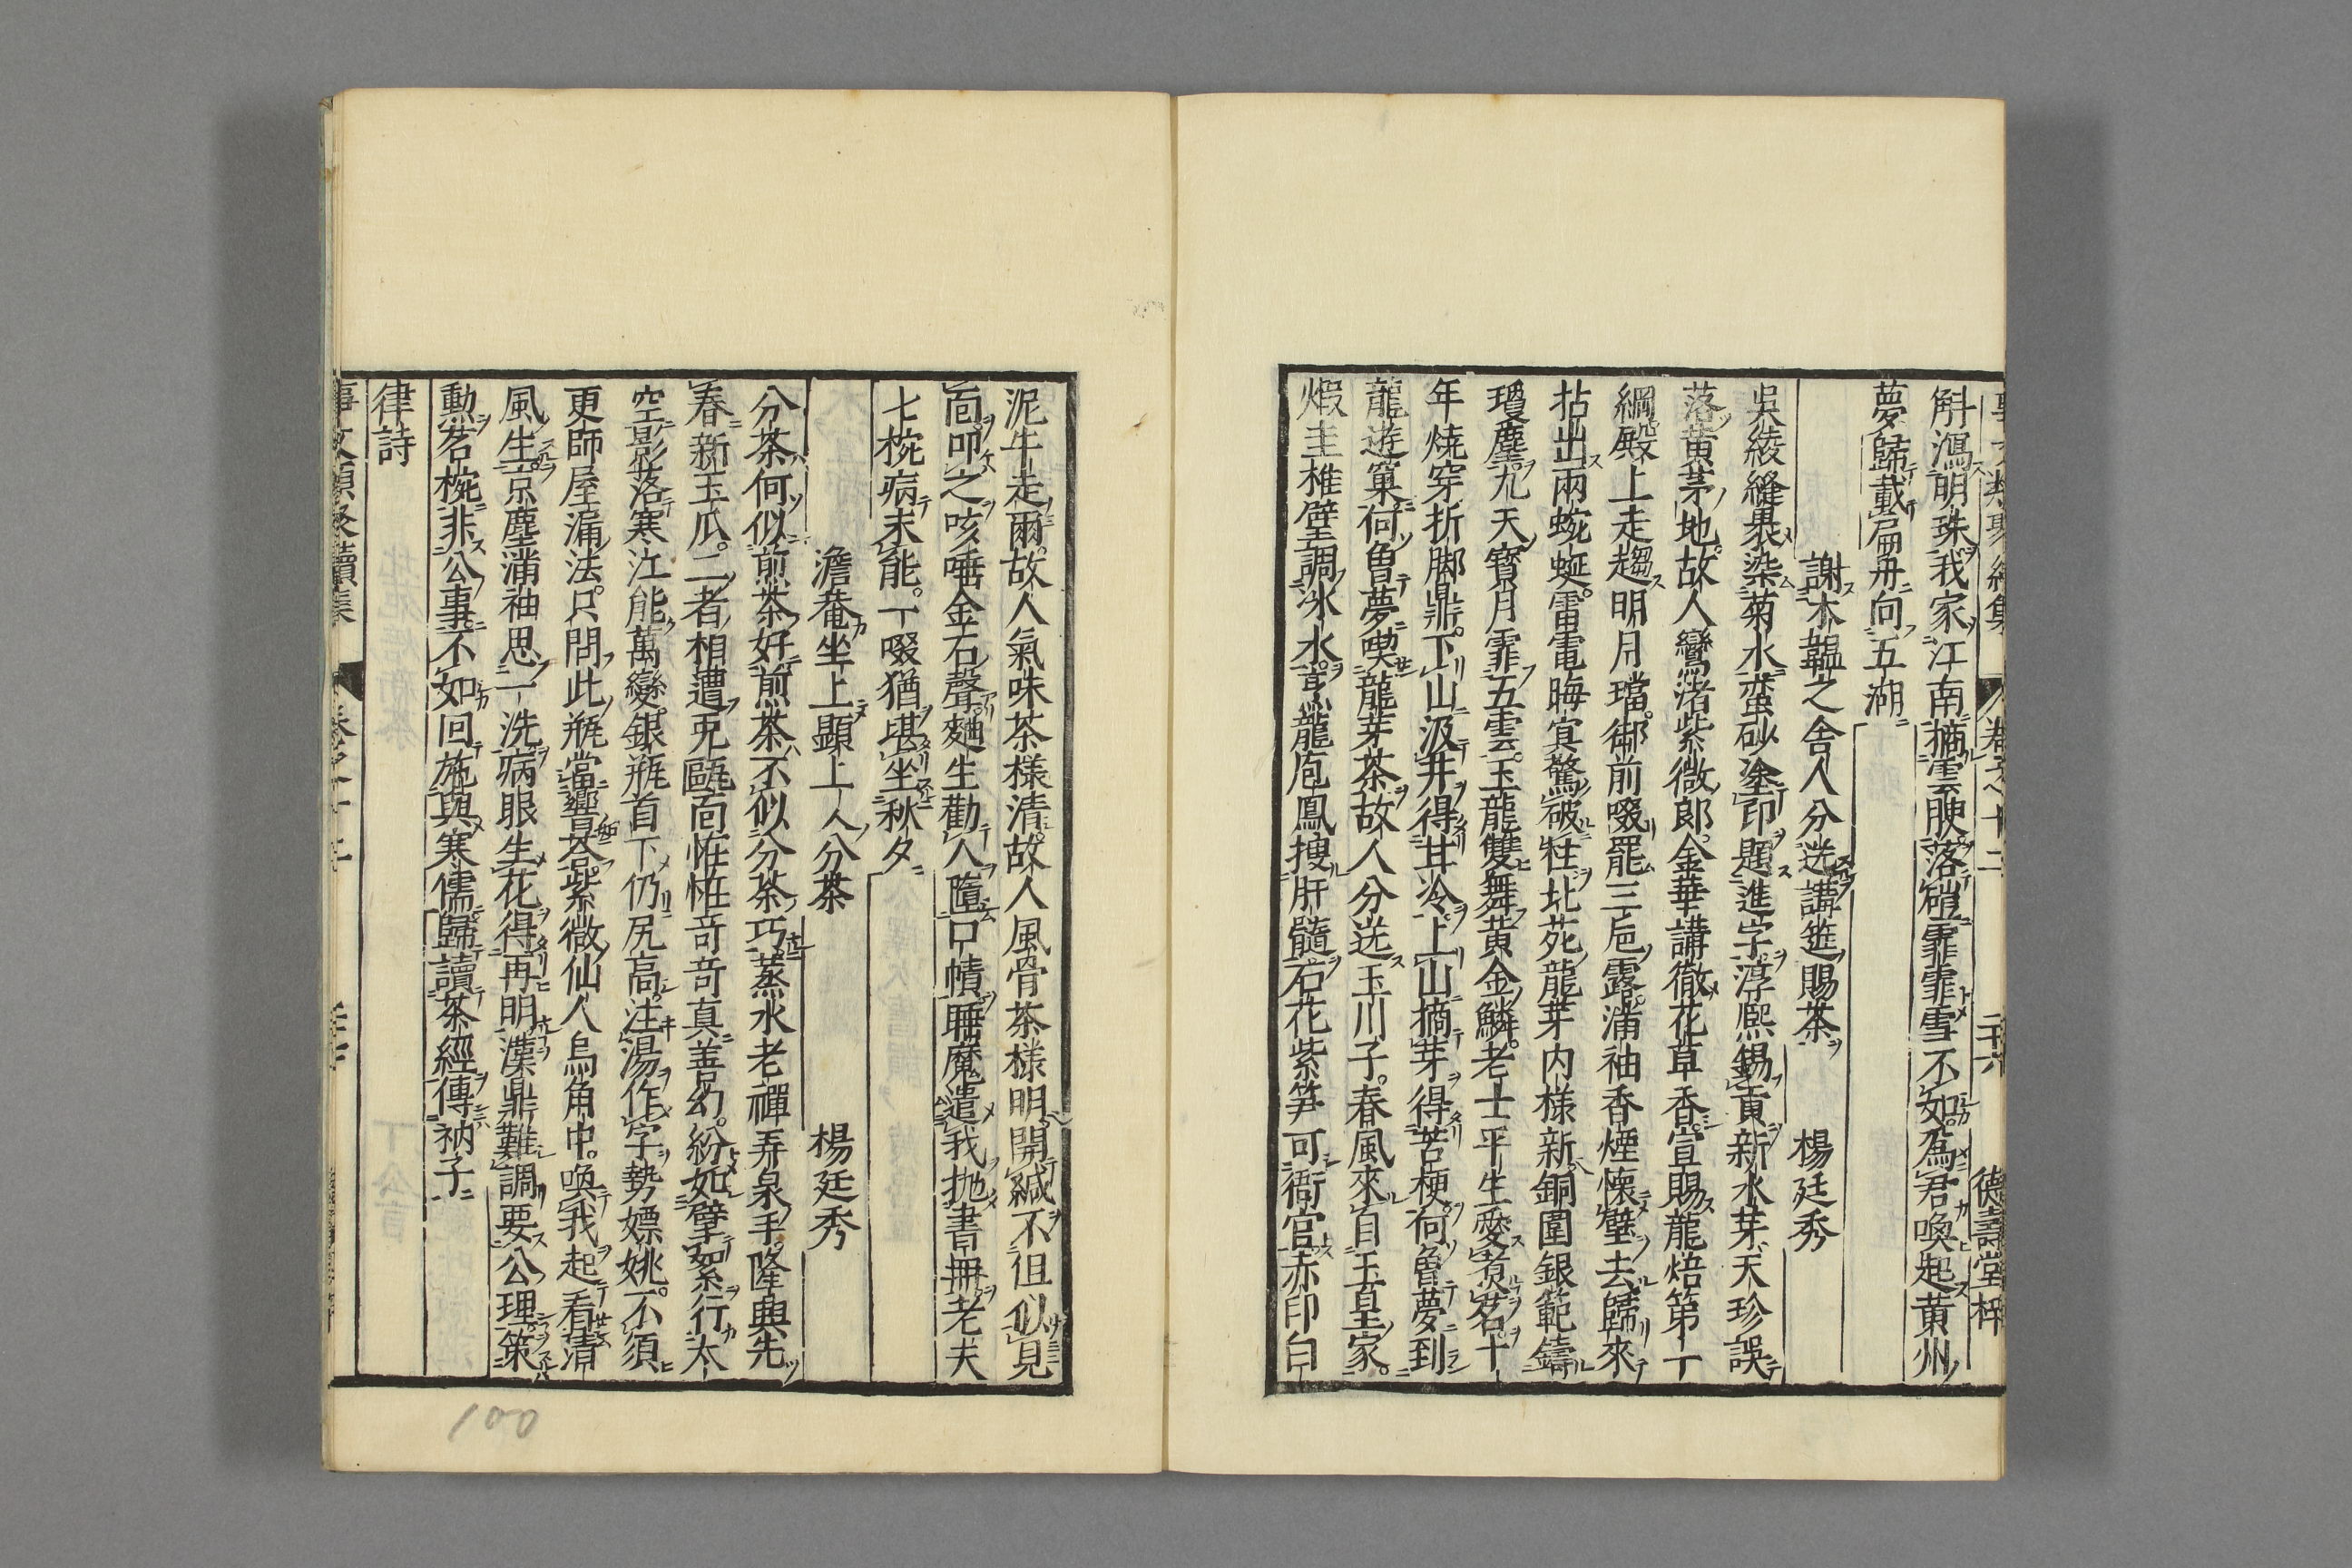 事文類聚續集 卷之十二 二十六 德壽堂梓
斛瀉明珠我家江南摘雲腴落磑霏霏雪不如為君喚起黃州
夢歸戴扁舟向五湖
謝木韞之舍人分送講筵賜茶 楊廷秀
吳綾縫裹染菊水蛮砂塗印題進字淳熙錫貢新水芽天珍誤
落黃茅地故人鸞渚紫微郎金華講徹花草香宣賜龍焙第一
綱殿上走趨明月璫御前啜罷三危露滿袖香煙懐璧去歸來
拈出兩蜿蜒雷電晦冥驚破柱北苑龍芽内樣新銅圍銀範鑄
瓊塵九天寶月霏五雲玉龍雙舞黃金鱗老士平生愛煑茗十
年燒穿折脚鼎下山汲井得甘冷上山摘芽得苦梗何曽夢到
龍遊窠何曽夢喫龍芽茶故人分送玉川子春風來自玉皇家
煆圭椎璧調氷水烹龍庖鳳捜肝髓石花紫笋可衙官赤印白
泥牛走爾故人氣味茶樣清故人風骨茶樣明開緘不但似見
面叩之咳唾金石聲麯生勸人墮巾幘睡魔遣我抛書冊老夫
七椀病未能一啜猶堪坐秋夕
澹菴坐上顯上人分茶 楊廷秀
分茶何似煎茶好煎茶不似分茶巧蒸水老禪弄泉手隆興先
春新玉瓜二者相遭兎甌面恠恠竒竒真善幻紛如擘絮行太
空影落寒江能萬變銀瓶首下仍尻高注湯作字勢嫖姚不須
更師屋漏法只問此瓶當響荅紫微仙人烏角巾喚我起看清
風生京塵滿袖思一洗病眼生花得再明漢鼎難調要公理策
勲茗椀非公事不如回施與寒儒歸讀茶經傳衲子
律詩
事文類聚續集 卷之十二
100